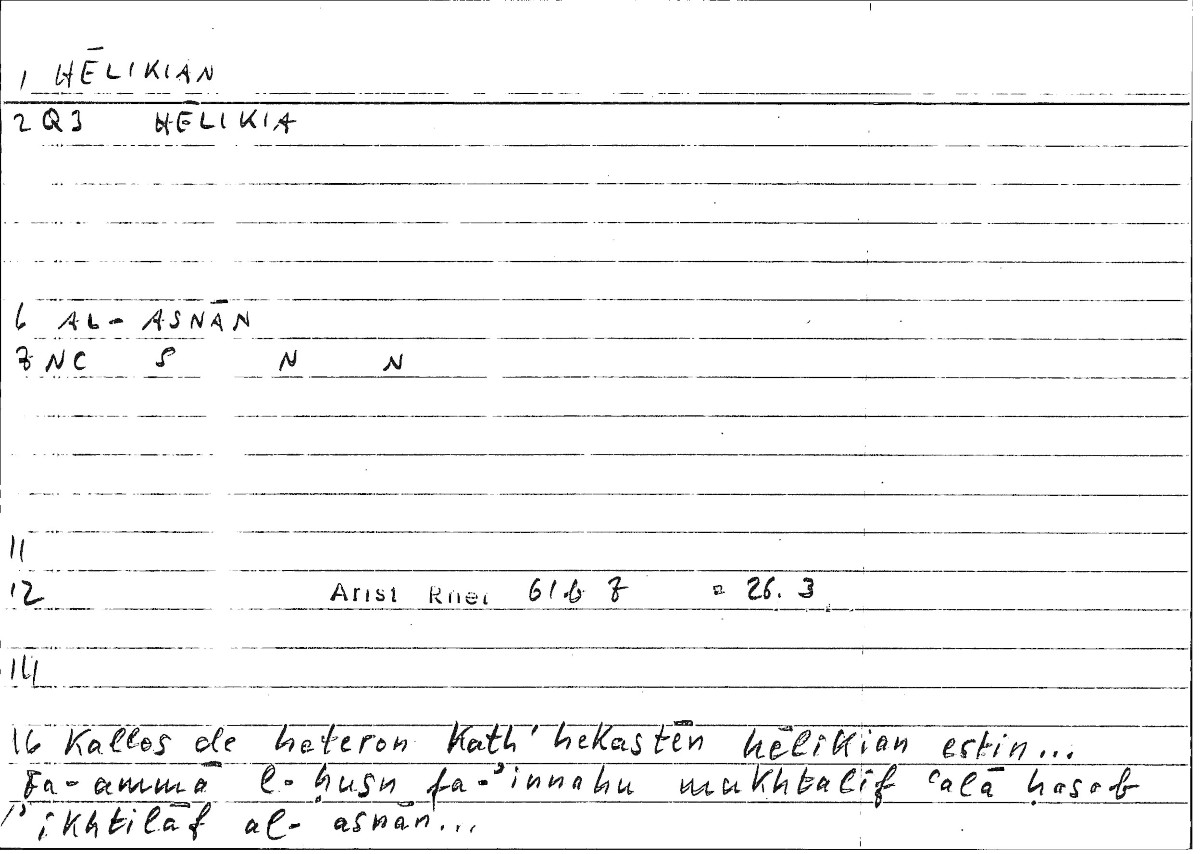 1 HĒLIKIAN
2 Q3 HĒLIKIA
6 AL- ASNĀN
7 NC S N N
11
12 Arist Rhet 61b 7 = 26.3
14
16 Kallos de heteron kath' hekastēn hēlikian estin...
Fa-ammā l-ḥusn fa-'innahu mukhtalif ʿalā ḥasab
'ikhtilāf al- asnān...